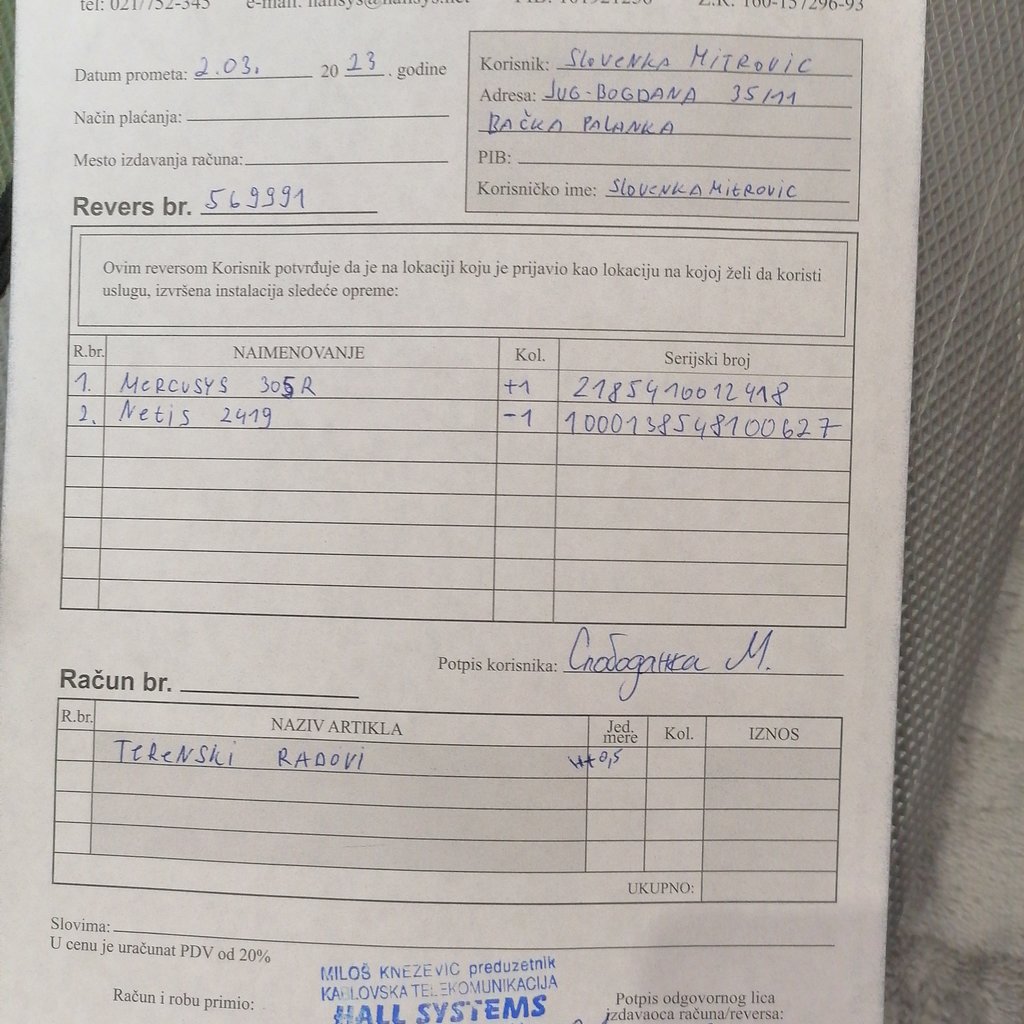 tel: 021/752-345 e-mail: hallsys@hallsys.net
Datum prometa: 2.03. 20 23. godine
Način plaćanja:
Mesto izdavanja računa:
Revers br. 569991
Korisnik: SLOVENKA MITROVIC
Adresa: JUG-BOGDANA 35/11
BAČKA PALANKA
PIB:
Korisničko ime: SLOVENKAMITROVIC
Ovim reversom Korisnik potvrđuje da je na lokaciji koju je prijavio kao lokaciju na kojoj želi da koristi
uslugu, izvršena instalacija sledeće opreme:
R.br. NAIMENOVANJE Kol. Serijski broj
1. MERCUSYS 305R +1 2185410012418
2. Netis 2419 -1 1000138548100627
Potpis korisnika: Слободанка М.
Račun br.
R.br. NAZIV ARTIKLA Jed. mere Kol. IZNOS
TERENSKI RADOVI 0,5
UKUPNO:
Slovima:
U cenu je uračunat PDV od 20%
MILOŠ KNEZEVIC preduzetnik
KABLOVSKA TELEKOMUNIKACIJA
HALL SYSTEMS
Račun i robu primio:
Potpis odgovornog lica
izdavaoca računa/reversa: